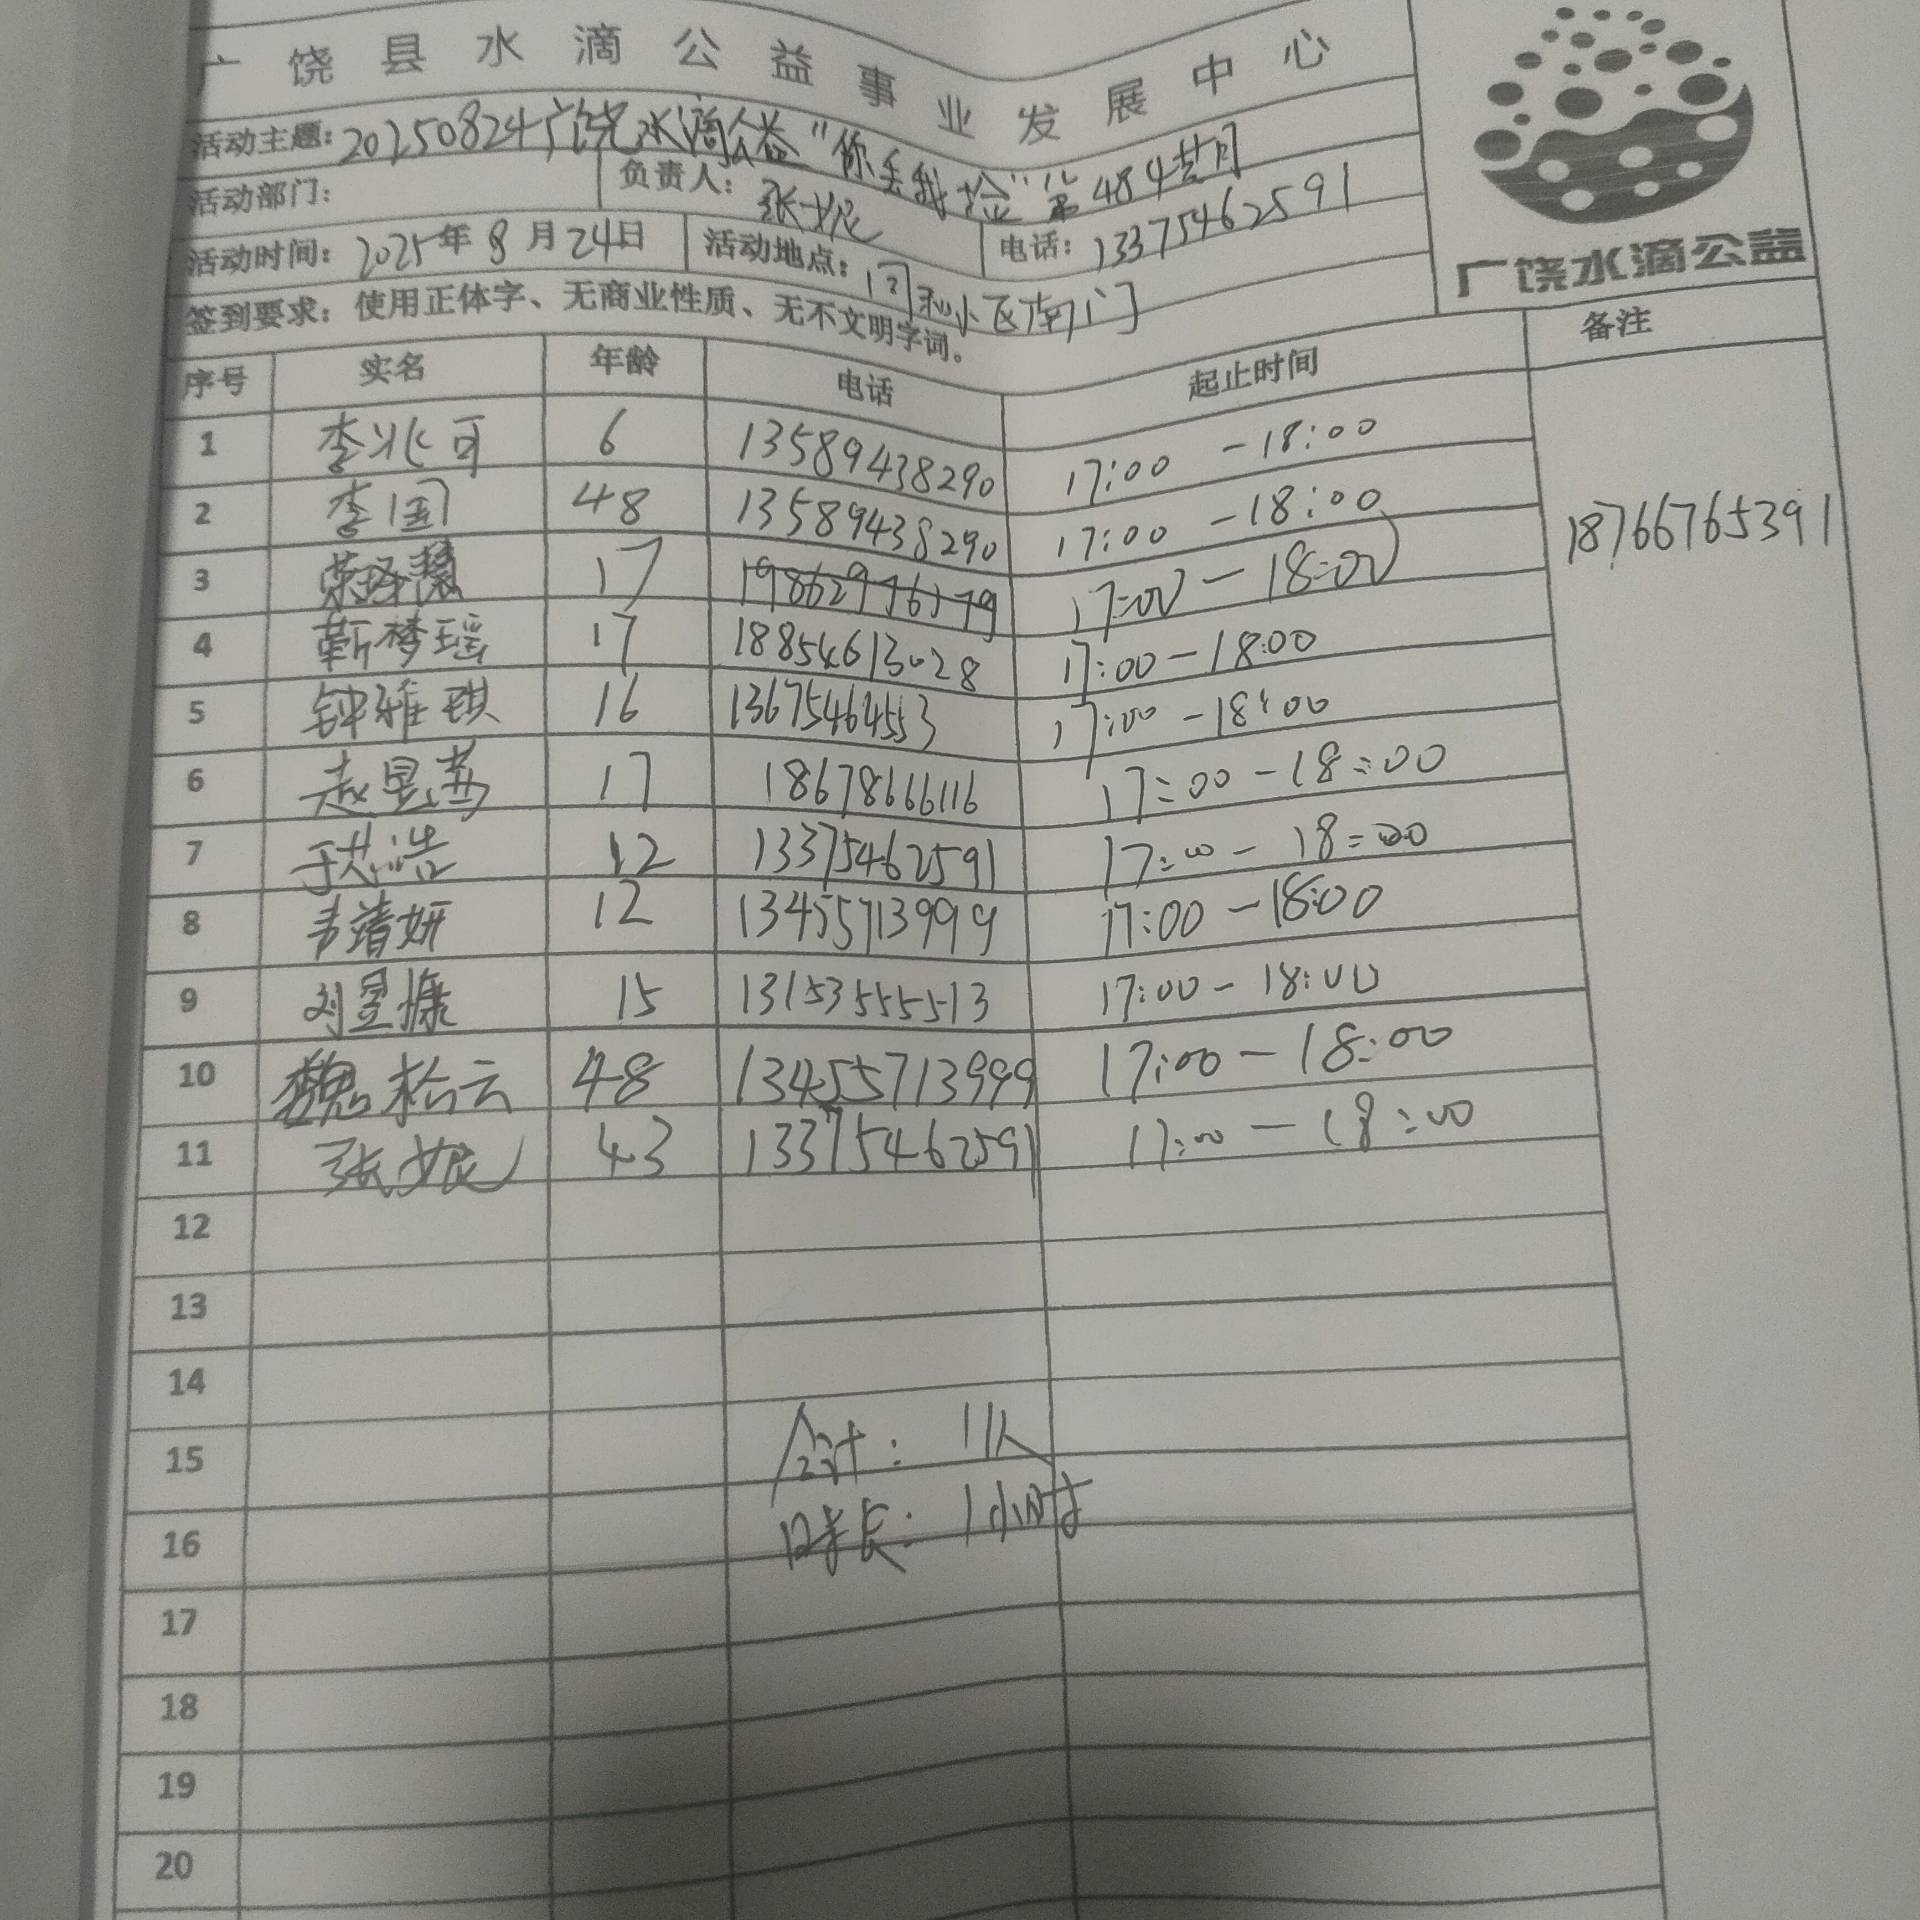 广饶县水滴公益事业发展中心
活动主题: 20250824广饶水滴公益"你丢我捡"第484期
活动部门: 负责人: 张妮 电话: 13375462591
活动时间: 2025年8月24日 活动地点: 小区南门
签到要求: 使用正体字、无商业性质、无不文明字词。
广饶水滴公益
序号 实名 年龄 电话 起止时间 备注
1 李兆可 6 13589438290 17:00 -18:00
2 李国 48 13589438290 17:00 -18:00 18766765391
3 17 17:00-18:00
4 靳梦瑶 17 18854613028 17:00-18:00
5 钟雅琪 16 13675464553 17:00-18:00
6 赵昱茜 17 18678666116 17:00-18:00
7 于洪浩 12 13375462591 17:00-18:00
8 韦靖妍 12 13455713999 17:00-18:00
9 刘昱慷 15 13153555513 17:00-18:00
10 魏松云 48 13455713999 17:00-18:00
11 张妮 43 13375462591 17:00-18:00
12
13
14
15 合计: 11人
16 时长: 1小时
17
18
19
20